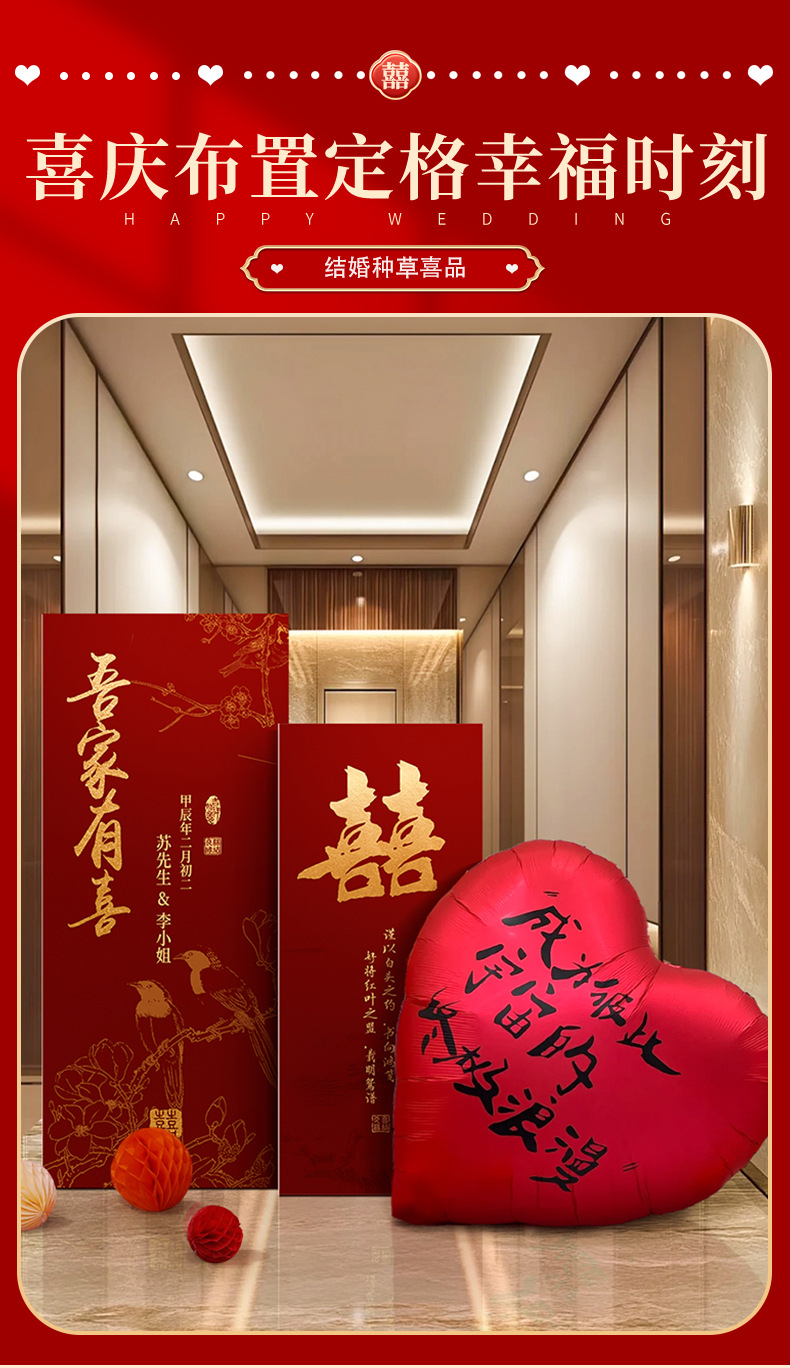 囍
喜庆布置定格幸福时刻
HAPPY WEDDING
结婚种草喜品
吾家有喜
甲辰年二月初二
苏先生 & 李小姐
囍
囍
谨以白头之约 书向鸿笺
好将红叶之盟 载明鸳谱
成为彼此
宇宙的
终极浪漫